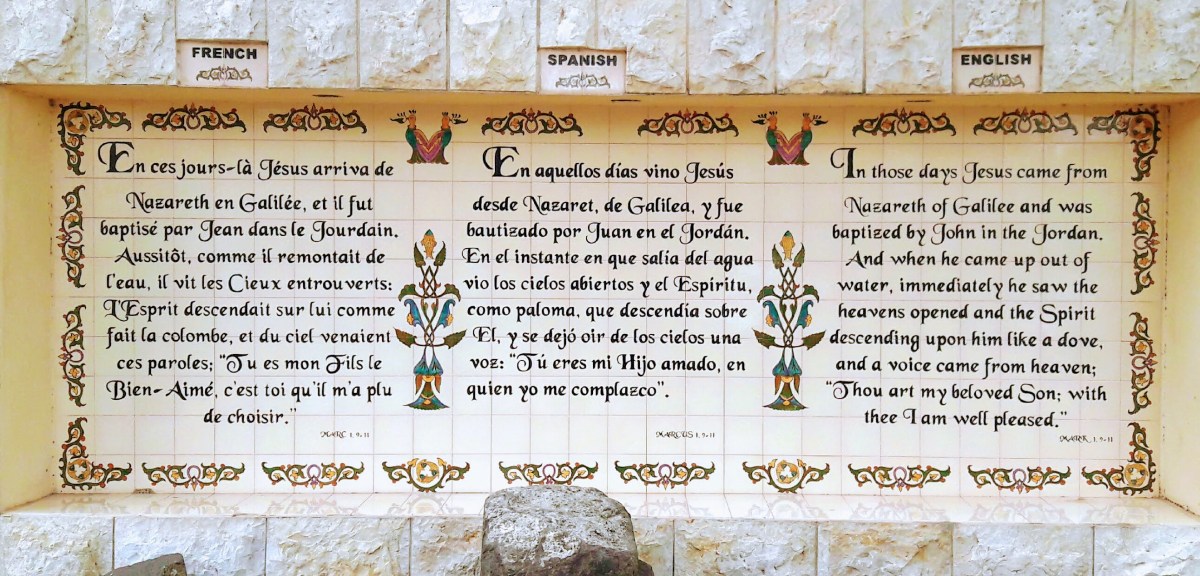 FRENCH
En ces jours-là Jésus arriva de
Nazareth en Galilée, et il fut
baptisé par Jean dans le Jourdain.
Aussitôt, comme il remontait de
l'eau, il vit les Cieux entrouverts:
L'Esprit descendait sur lui comme
fait la colombe, et du ciel venaient
ces paroles; "Tu es mon Fils le
Bien-Aimé, c'est toi qu'il m'a plu
de choisir."
MARC 1, 9-11
SPANISH
En aquellos días vino Jesús
desde Nazaret, de Galilea, y fue
bautizado por Juan en el Jordán.
En el instante en que salía del agua
vio los cielos abiertos y el Espíritu,
como paloma, que descendía sobre
El, y se dejó oir de los cielos una
voz: "Tú eres mi Hijo amado, en
quien yo me complazco".
MARCOS 1, 9-11
ENGLISH
In those days Jesus came from
Nazareth of Galilee and was
baptized by John in the Jordan.
And when he came up out of
water, immediately he saw the
heavens opened and the Spirit
descending upon him like a dove,
and a voice came from heaven;
"Thou art my beloved Son; with
thee I am well pleased."
MARK 1, 9-11